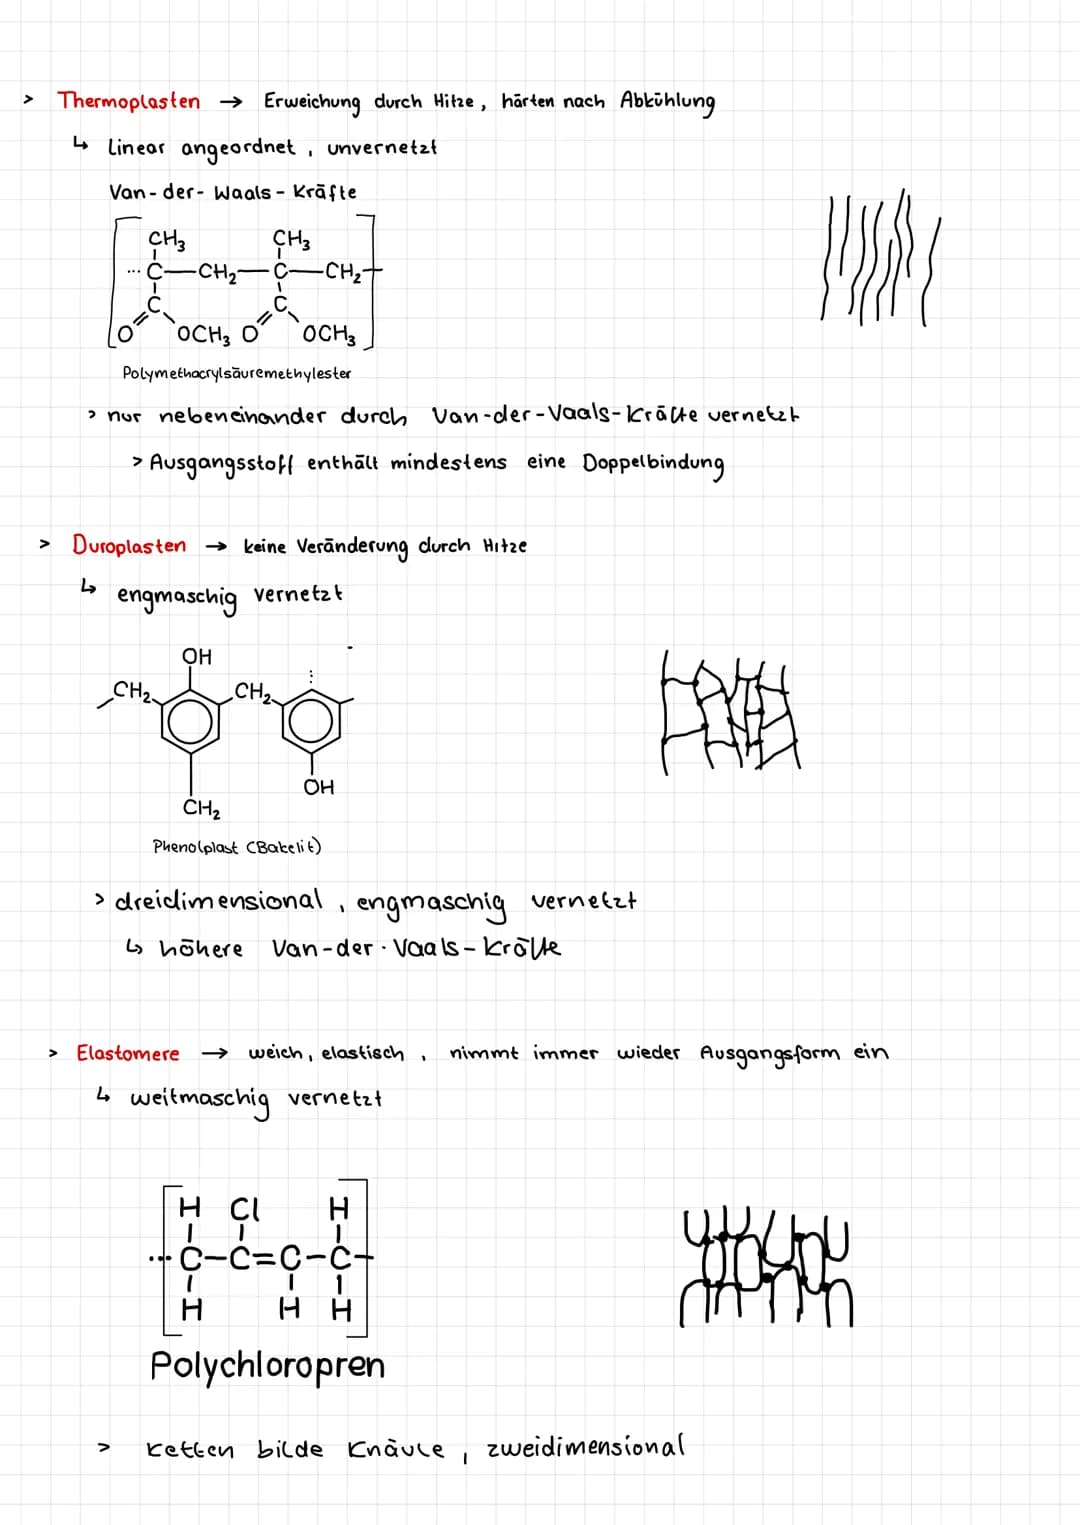 > Thermoplasten → Erweichung durch Hitze, härten nach Abkühlung
↳ Linear angeordnet, unvernetzt
Van-der-Waals-Kräfte
CH₃ CH₃
... C—CH₂—C—CH₂
C C
O OCH₃ O OCH₃
Polymethacrylsäuremethylester
> nur nebeneinander durch Van-der-Vaals-Kräfte vernetzt
> Ausgangsstoff enthält mindestens eine Doppelbindung
> Duroplasten → keine Veränderung durch Hitze
↳ engmaschig vernetzt
OH
CH₂ CH₂
OH
CH₂
Phenolplast (Bakelit)
> dreidimensional, engmaschig vernetzt
↳ höhere Van-der-Vaals-Kräfte
> Elastomere → weich, elastisch, nimmt immer wieder Ausgangsform ein
↳ weitmaschig vernetzt
H Cl H
... C–C=C–C
H H H
Polychloropren
> Ketten bilde Knäule, zweidimensional